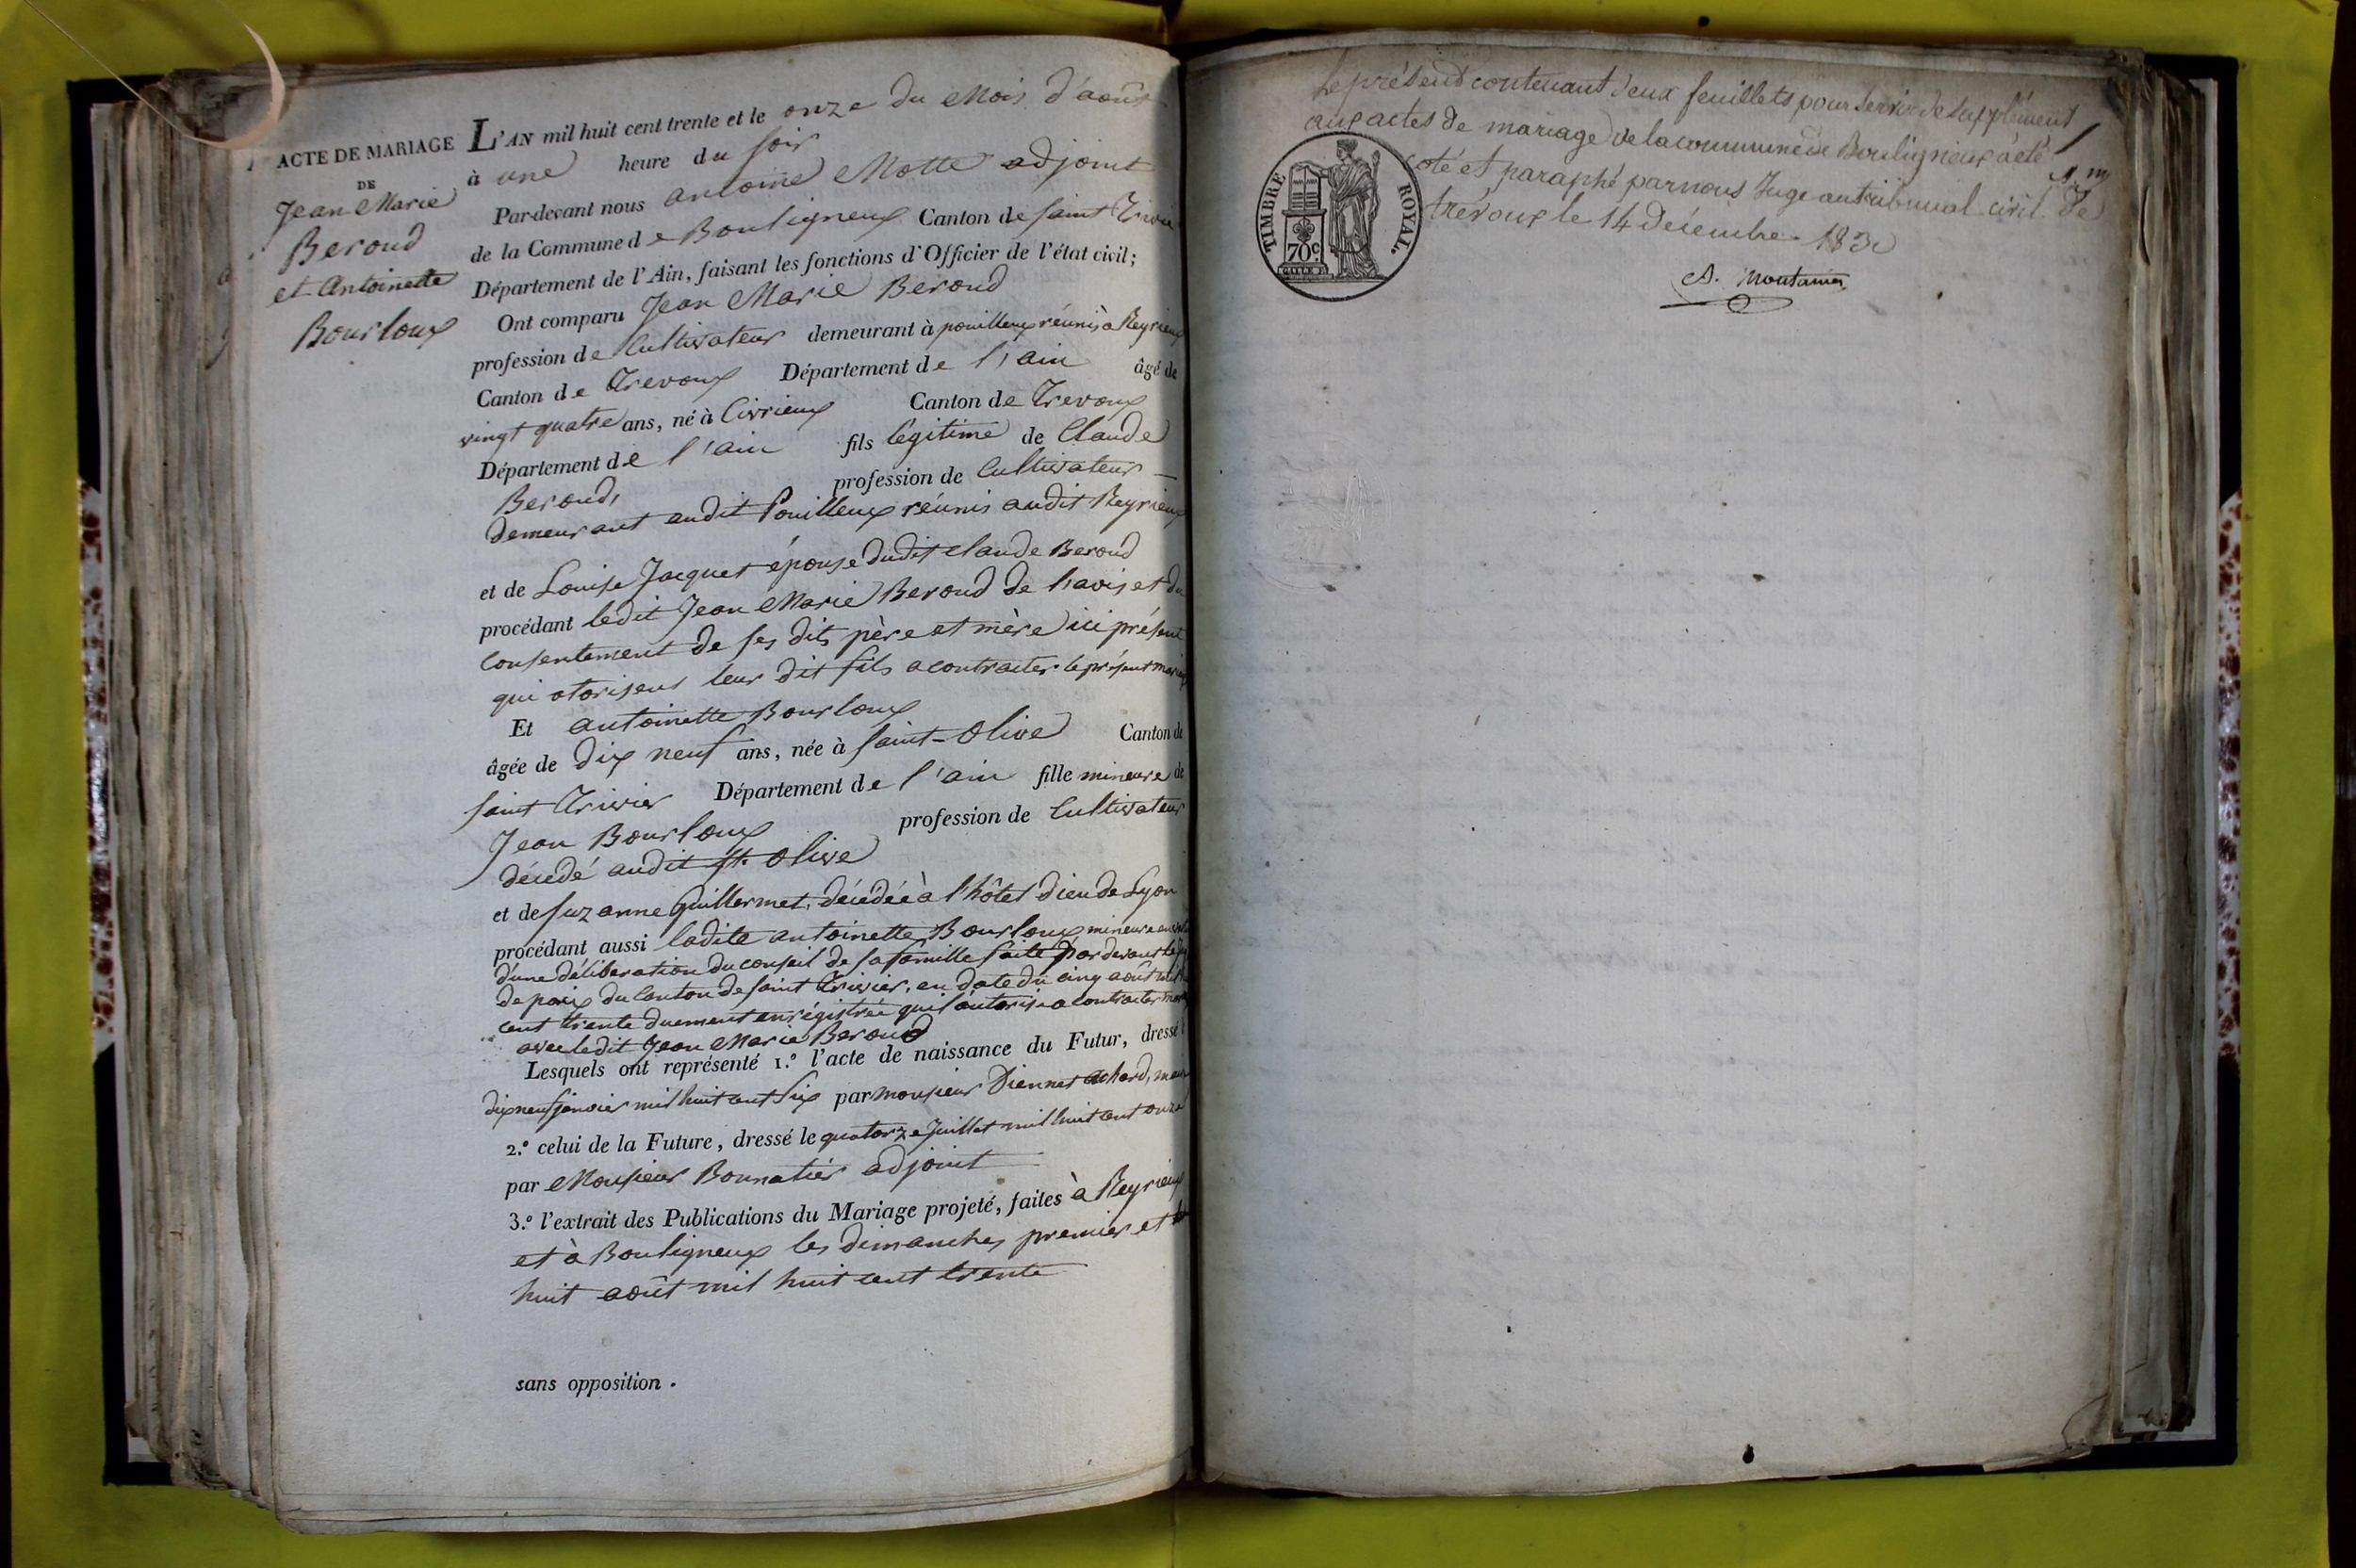 ACTE DE MARIAGE
DE
Jean Marie
Beroud
et Antoinette
Bourloux
L'AN mil huit cent trente et le onze du Mois d'août
à une heure du soir
Par-devant nous antoine Motte adjoint
de la Commune de Bouligneux Canton de saint Trivier
Département de l'Ain, faisant les fonctions d'Officier de l'état civil;
Ont comparu Jean Marie Beroud
profession de Cultivateur demeurant à pouilleux réunis à Reyrieux
Canton de Trevoux Département de l'ain âgé de
vingt quatre ans, né à Civrieux Canton de Trevoux
Département de l'ain fils légitime de Claude
Beroud, profession de Cultivateur
demeurant audit Pouilleux réunis audit Reyrieux
et de Louise Jacquet épouse dudit claude Beroud
procédant ledit Jean Marie Beroud de l'avis et du
consentement de ses dits père et mère ici présent
qui otorisens leur dit fils a contracter le présent mariage
Et antoinette Bourloux
âgée de dix neuf ans, née à saint-Olive Canton de
saint Trivier Département de l'ain fille mineure de
Jean Bourloux profession de Cultivateur
décedé audit st. Olive
et de suzanne Guillermet, décédée à l'hôtel dieu de Lyon
procédant aussi ladite antoinette Bourloux mineure en
d'une déliberation du conseil de sa famille faite par devant le
de paix du Canton de saint Trivier, en date du cinq août mil
cent trente duement enrégistrée qui l'autorise a contracter
avec ledit Jean Marie Beroud
Lesquels ont représenté 1.° l'acte de naissance du Futur, dressé
dix neuf janvier mil huit cent six par monsieur Diennet achard,
2.° celui de la Future, dressé le quatorze Juillet mil huit cent onze
par Monsieur Bonnatier adjoint
3.° l'extrait des Publications du Mariage projeté, faites à Reyrieux
et à Bouligneux les dimanches premier et
huit août mil huit cent trente
sans opposition.
Le présent contenant deux feuillets pour servir de supplément
aux actes de mariage de la commune de Bouligneux a été
coté et paraphé par nous Juge au tribunal civil de
trévoux le 14 décembre 1830
A. m
A. Montanier
TIMBRE ROYAL.
70c